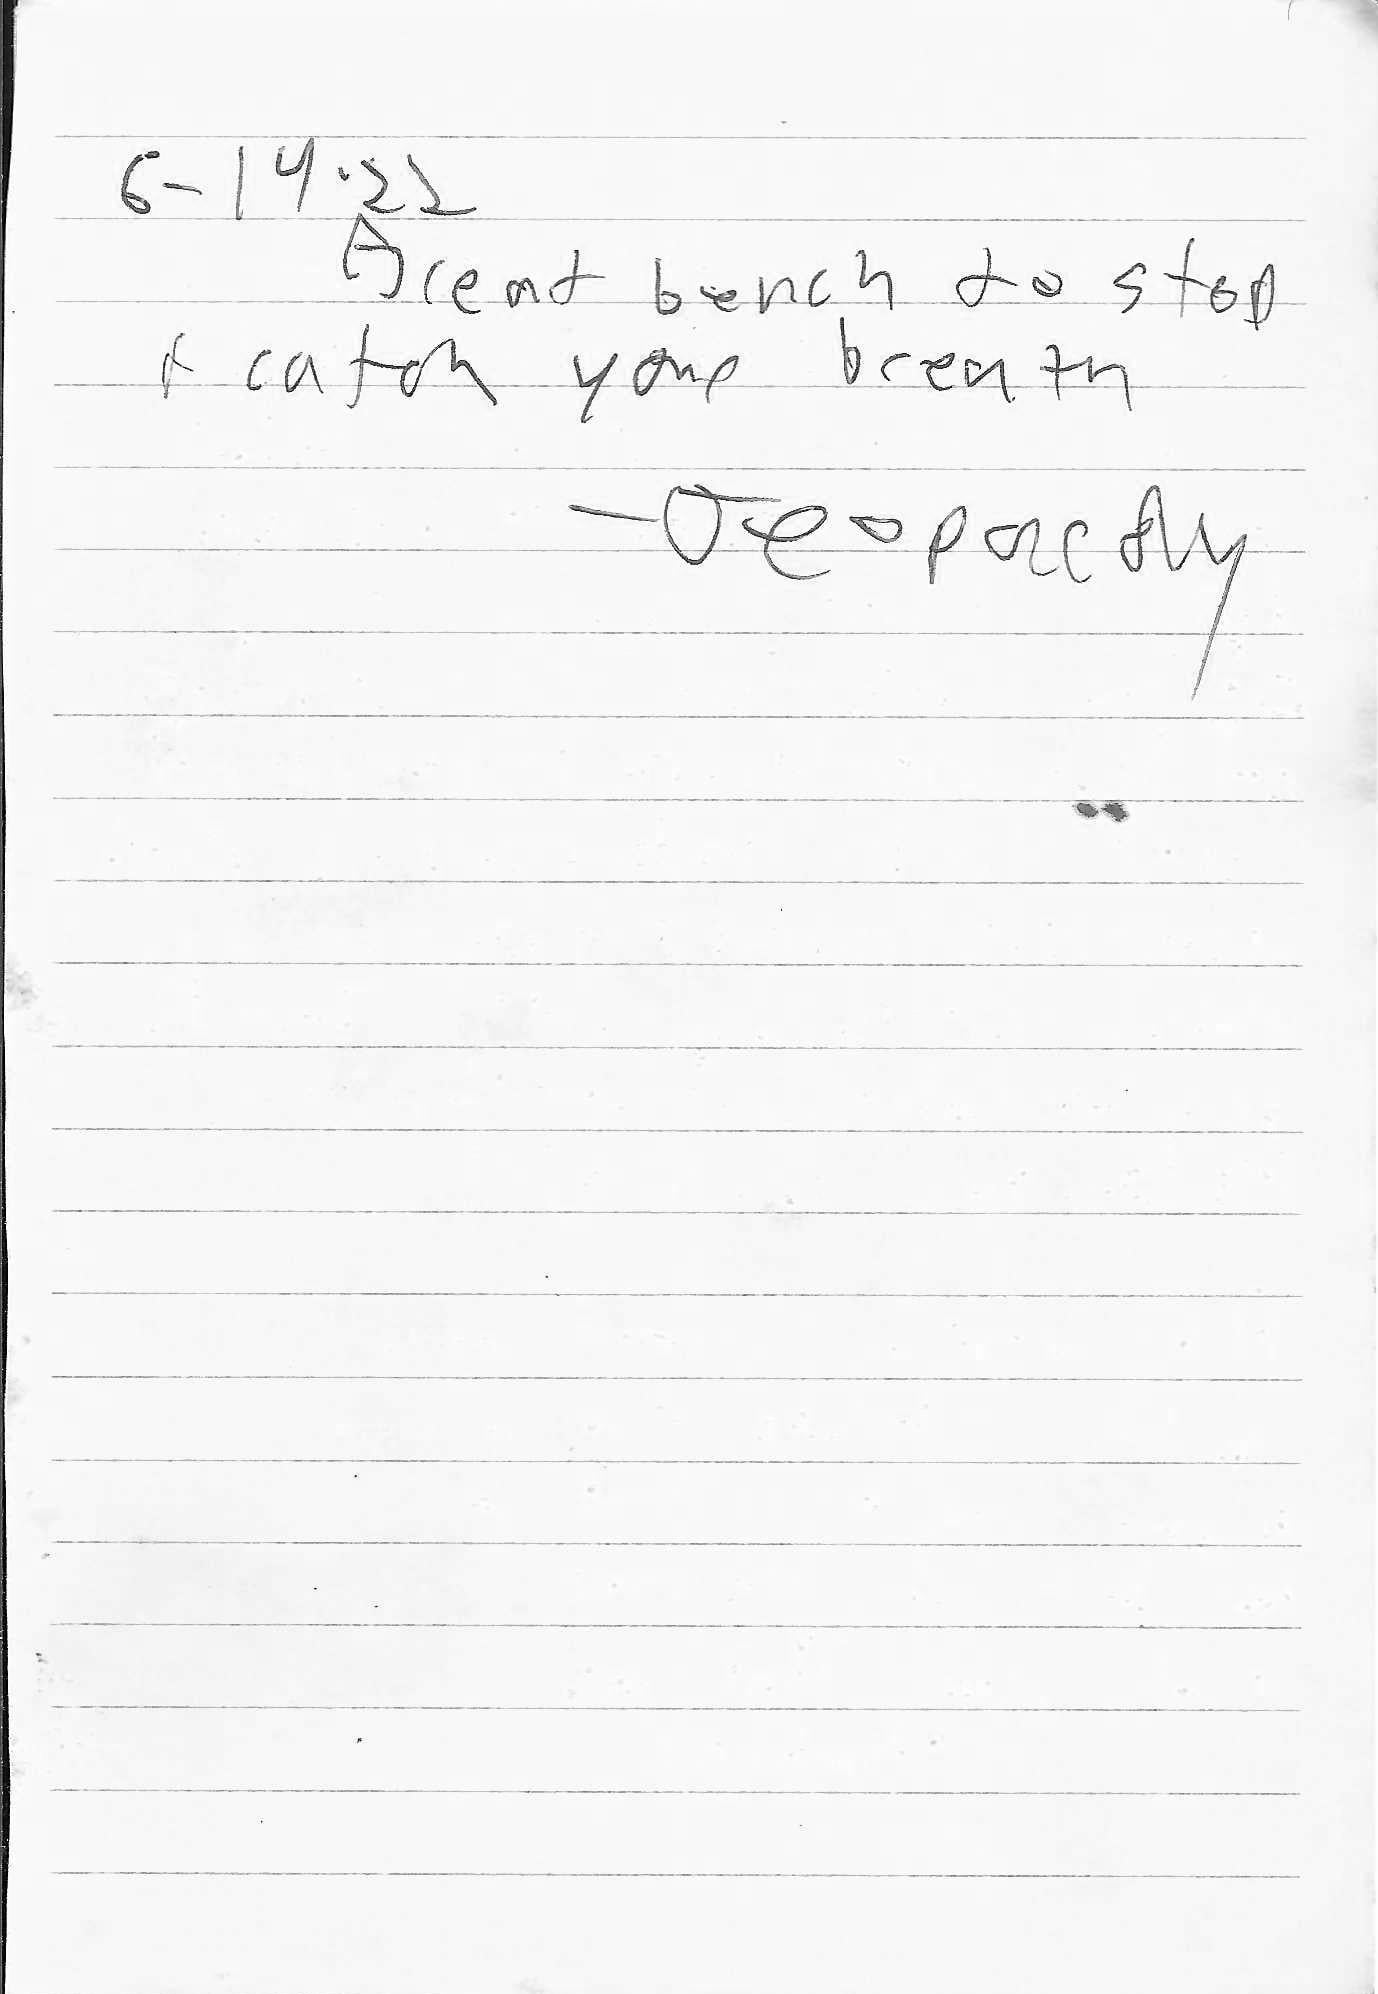 6-14.22
A great bench to stop
& catch your breath
- Jeopardy